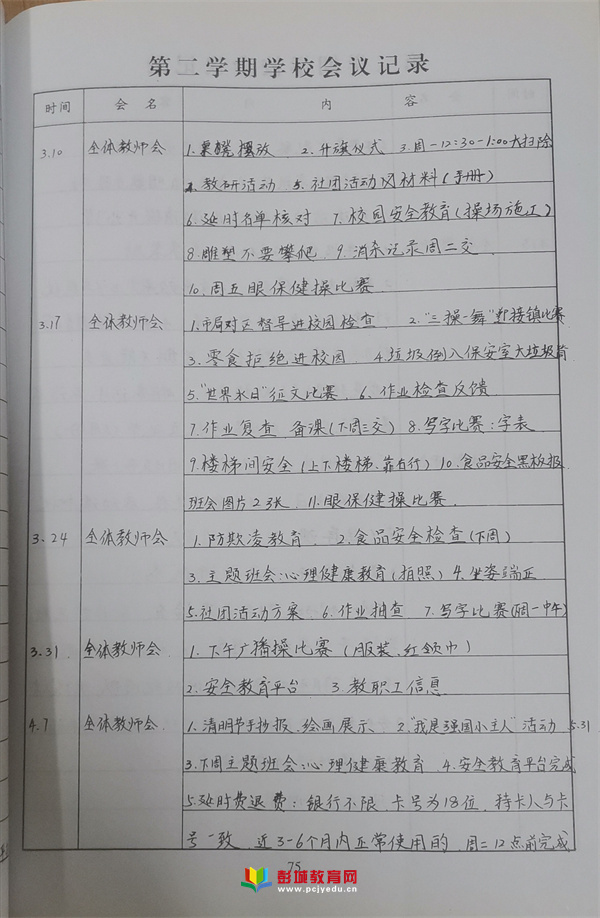 第二学期学校会议记录
时间 会名 内容
3.10 全体教师会 1. 摆放 2. 升旗仪式 3. 周一12:30-1:00大扫除
4. 教研活动 5. 社团活动 材料(手册)
6. 延时名单核对 7. 校园安全教育(操场施工)
8. 雕塑不要攀爬 9. 消杀记录周二交
10. 周五眼保健操比赛
3.17 全体教师会 1. 市局对区督导进校园检查 2. "三操一舞"迎接镇比赛
3. 零食拒绝进校园 4. 垃圾倒入保安室大垃圾
5. "世界水日"征文比赛 6. 作业检查反馈
7. 作业复查 备课(下周三交) 8. 写字比赛:字表
9. 楼梯间安全(上下楼梯、靠右行) 10. 食品安全黑板报
班会图片23张 11. 眼保健操比赛
3.24 全体教师会 1. 防欺凌教育 2. 食品安全检查(下周)
3. 主题班会:心理健康教育(拍照) 4. 坐姿端正
5. 社团活动方案 6. 作业抽查 7. 写字比赛(周一中午)
3.31 全体教师会 1. 下午广播操比赛(服装、红领巾)
2. 安全教育平台 3. 教职工信息
4.7 全体教师会 1. 清明节手抄报、绘画展示 2. "我是强国小主人"活动 5.31
3. 下周主题班会:心理健康教育 4. 安全教育平台完成
5. 延时费退费:银行不限 卡号为18位 持卡人与卡
号一致 近3-6个月内正常使用的 周二12点前完成
75
彭城教育网
www.pcjyedu.cn